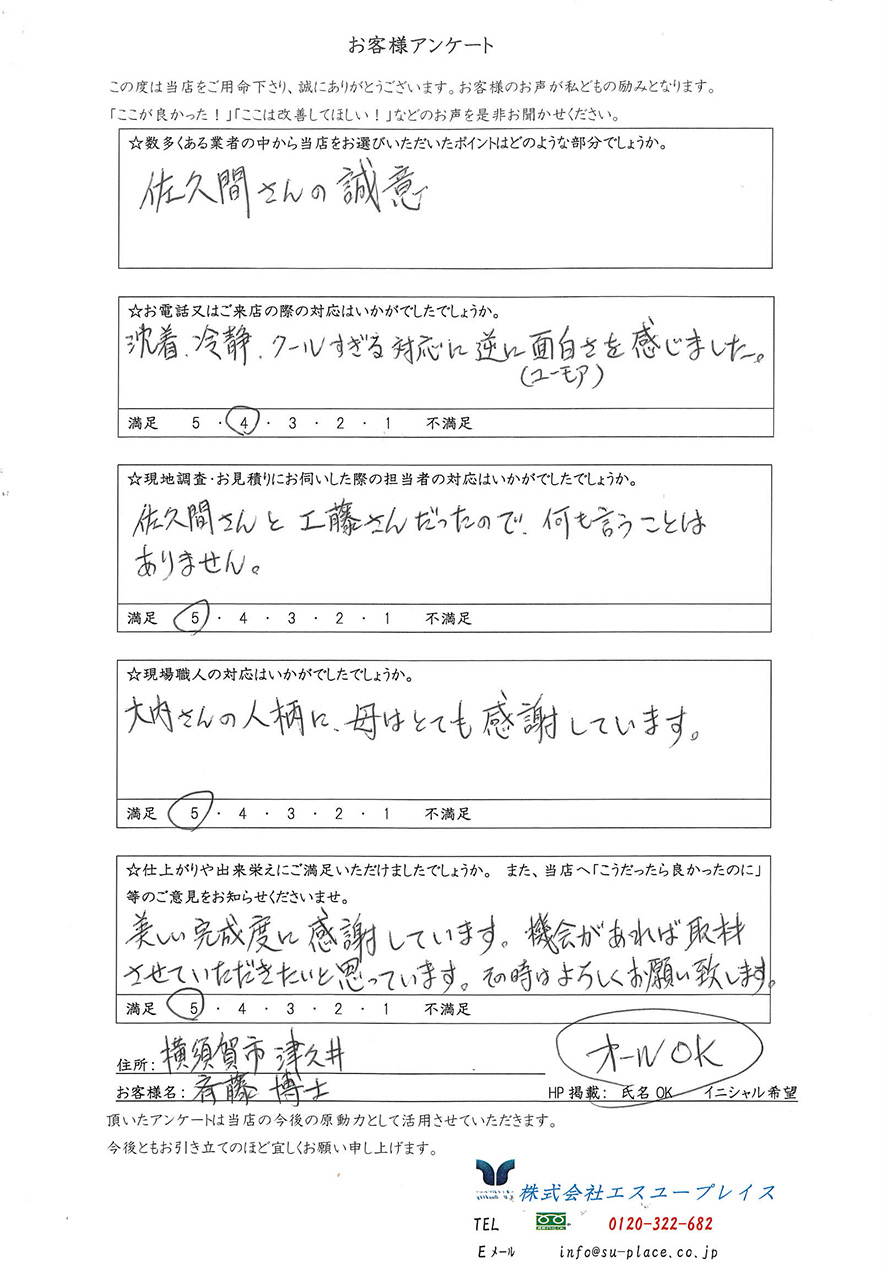 お客様アンケート
この度は当店をご用命下さり、誠にありがとうございます。お客様のお声が私どもの励みとなります。
「ここが良かった!」「ここは改善してほしい!」などのお声を是非お聞かせください。
☆数多くある業者の中から当店をお選びいただいたポイントはどのような部分でしょうか。
佐久間さんの誠意
☆お電話又はご来店の際の対応はいかがでしたでしょうか。
沈着、冷静、クールすぎる対応に逆に面白さを感じました。
(ユーモア)
満足 5・4・3・2・1 不満足
☆現地調査・お見積りにお伺いした際の担当者の対応はいかがでしたでしょうか。
佐久間さんと工藤さんだったので、何も言うことは
ありません。
満足 5・4・3・2・1 不満足
☆現場職人の対応はいかがでしたでしょうか。
大内さんの人柄に、母はとても感謝しています。
満足 5・4・3・2・1 不満足
☆仕上がりや出来栄えにご満足いただけましたでしょうか。 また、当店へ「こうだったら良かったのに」
等のご意見をお知らせくださいませ。
美しい完成度に感謝しています。機会があれば取材
させていただきたいと思っています。その時はよろしくお願い致します。
満足 5・4・3・2・1 不満足
住所: 横須賀市津久井
オールOK
お客様名: 斉藤 博士
HP掲載: 氏名OK イニシャル希望
頂いたアンケートは当店の今後の原動力として活用させていただきます。
今後ともお引き立てのほど宜しくお願い申し上げます。
株式会社エスユープレイス
TEL 0120-322-682
Eメール info@su-place.co.jp